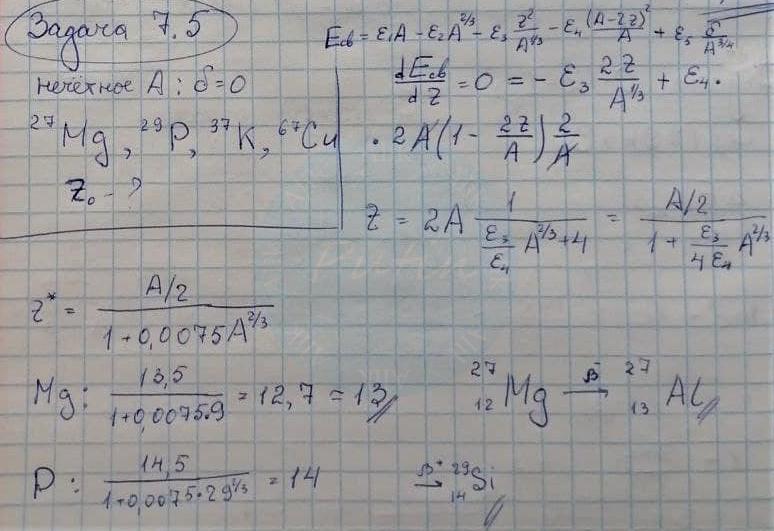 Задача 7.5
нечётное A : δ=0
²⁷Mg, ²⁹P, ³⁷K, ⁶⁷Cu
Z₀ - ?
Eсв = ε₁A - ε₂A^2/3 - ε₃ Z²/A^1/3 - ε₄ (A-2Z)²/A + ε₅ δ/A^3/4
dEсв/dZ = 0 = - ε₃ 2Z/A^1/3 + ε₄ ·
· 2A(1 - 2Z/A) 2/A
Z = 2A 1/(ε₃/ε₄ A^2/3 + 4) = (A/2)/(1 + ε₃/4ε₄ A^2/3)
Z* = (A/2)/(1+0,0075A^2/3)
Mg: 13,5/(1+0,0075·9) = 12,7 = 13
²⁷₁₂Mg β⁻→ ²⁷₁₃Al
P: 14,5/(1+0,0075·29^2/3) = 14
β⁺→ ²⁹₁₄Si